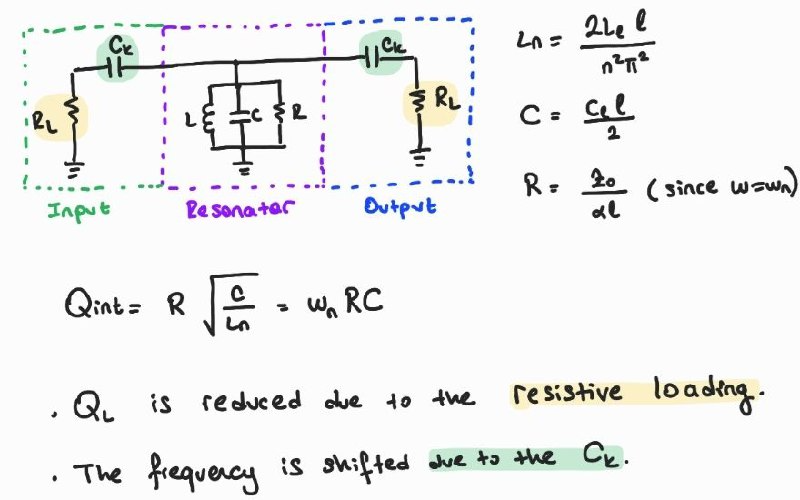 Cₖ
Cₖ
R_L
L
C
R
R_L
Input
Resonator
Output
Lₙ = 2Lₑ ℓ / n²π²
C = Cₑ ℓ / 2
R = Z₀ / αℓ (since ω=ωₙ)
Qint = R √(C / Lₙ) = ωₙ RC
. Q_L is reduced due to the resistive loading.
. The frequency is shifted due to the Cₖ.